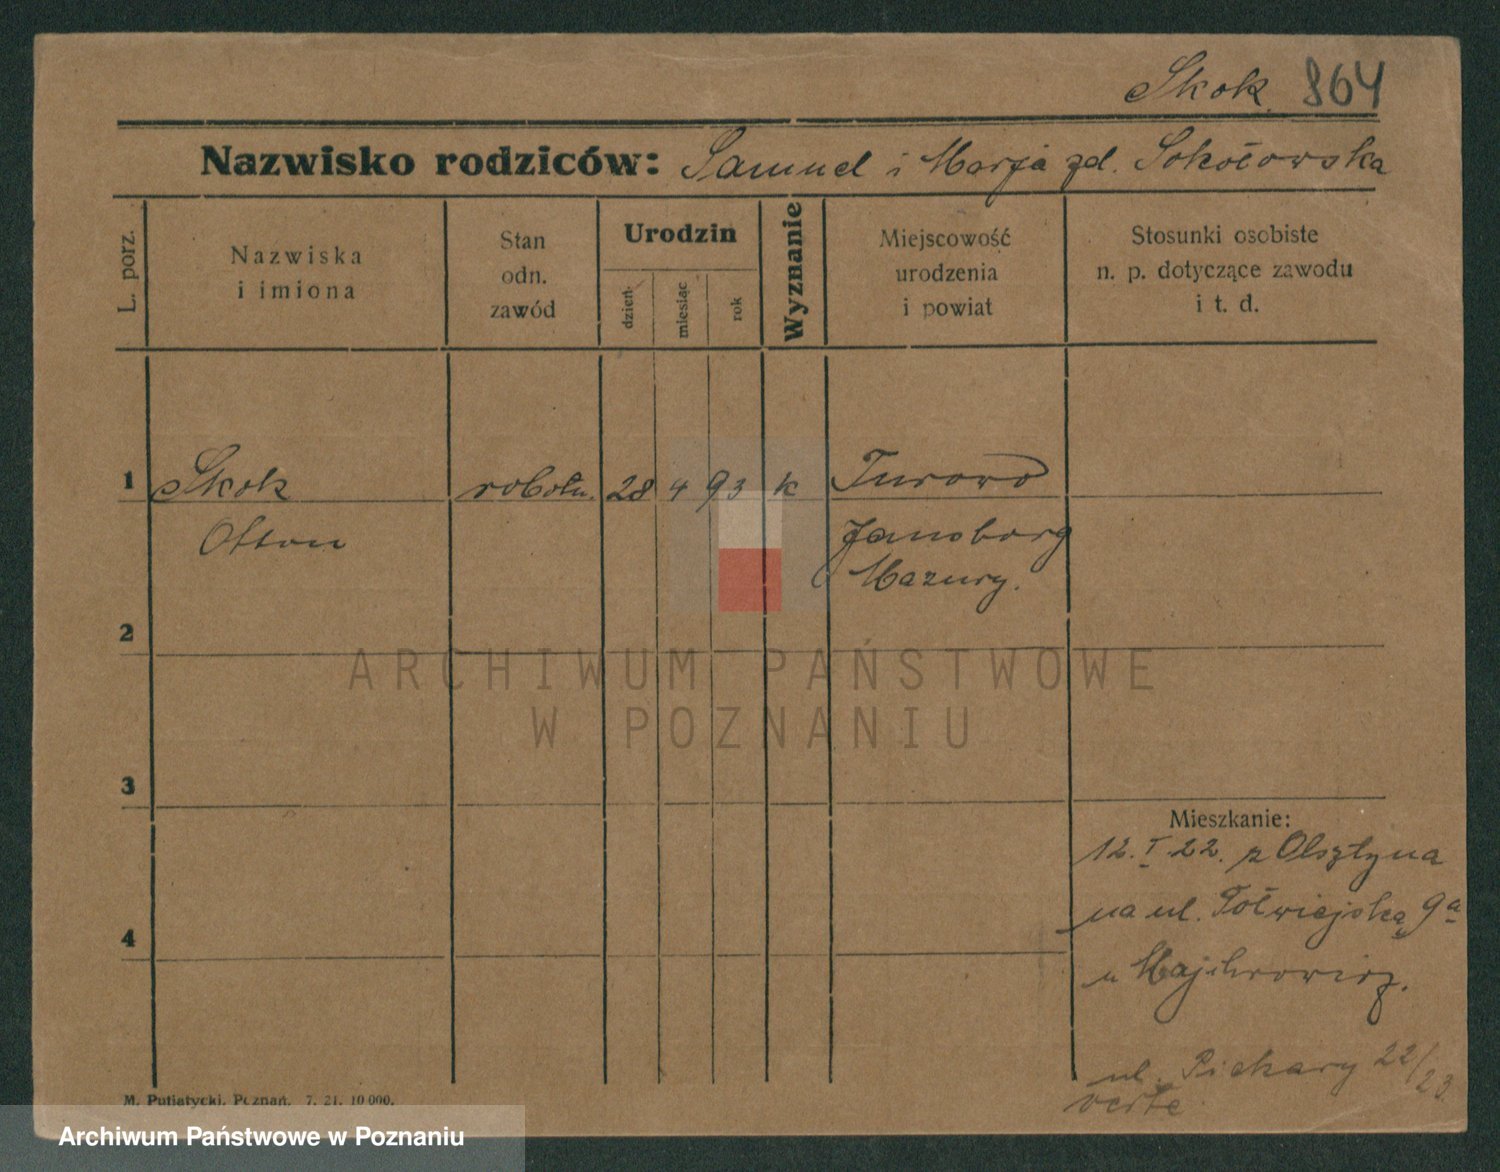 Skok. 864
Nazwisko rodziców: Samuel i Marja zd. Sokołowska
L. porz.
Nazwiska
i imiona
Stan
odn.
zawód
Urodzin
dzień
miesiąc
rok
Wyznanie
Miejscowość
urodzenia
i powiat
Stosunki osobiste
n. p. dotyczące zawodu
i t. d.
1 Skok robotn. 28 4 93 k Turowo
Otton Jansborg
Mazury.
2
ARCHIWUM PAŃSTWOWE
W POZNANIU
3
Mieszkanie:
12. I. 22. z Olsztyna
na ul. Półwiejską 9a
4
u Majchrowicz.
ul. Piekary 22/23
verte
M. Putiatycki, Poznań. 7. 21. 10 000.
Archiwum Państwowe w Poznaniu